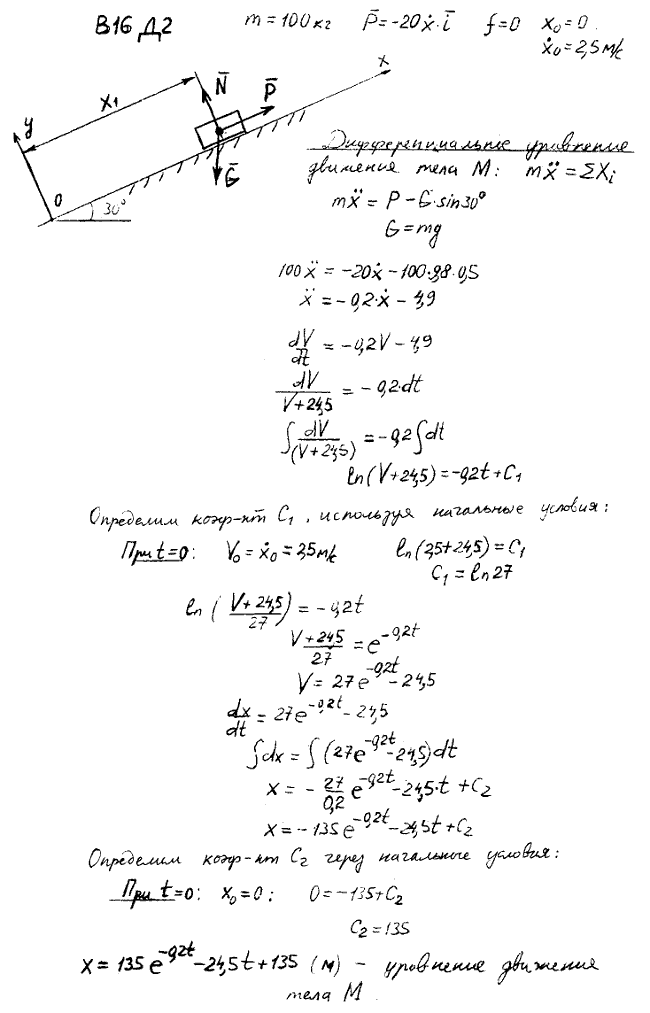 В16 Д2 m = 100 кг P̄ = -20ẋ·ī f = 0 x₀ = 0
ẋ₀ = 2,5 м/с
y X1 N̄ P̄ x
Ḡ
0 30°
Дифференциальное уравнение
движения тела М: mẍ = ΣXi
mẍ = P - G·sin30°
G = mg
100ẍ = -20ẋ - 100·9,8·0,5
ẍ = -0,2·ẋ - 4,9
dV/dt = -0,2V - 4,9
dV/(V+24,5) = -0,2·dt
∫ dV/(V+24,5) = -0,2∫dt
ln(V+24,5) = -0,2t + C₁
Определим коэф-нт C₁, используя начальные условия:
При t=0: V₀ = ẋ₀ = 2,5 м/с ln(2,5+24,5) = C₁
C₁ = ln27
ln((V+24,5)/27) = -0,2t
(V+24,5)/27 = e^(-0,2t)
V = 27e^(-0,2t) - 24,5
dx/dt = 27e^(-0,2t) - 24,5
∫dx = ∫(27e^(-0,2t) - 24,5)dt
x = - 27/0,2 e^(-0,2t) - 24,5·t + C₂
x = -135e^(-0,2t) - 24,5t + C₂
Определим коэф-нт C₂ через начальные условия:
При t=0: x₀ = 0: 0 = -135 + C₂
C₂ = 135
x = 135e^(-0,2t) - 24,5t + 135 (м) - уровнение движения
тела М